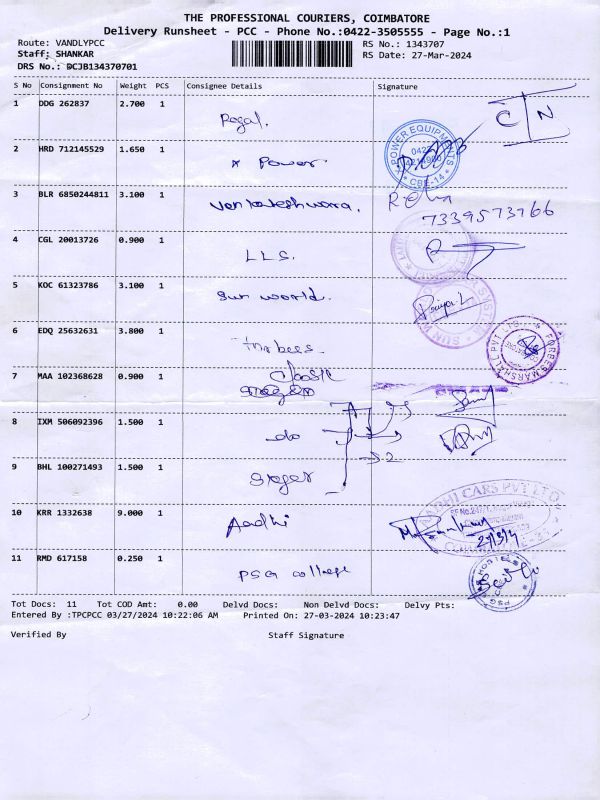 THE PROFESSIONAL COURIERS, COIMBATORE
Delivery Runsheet - PCC - Phone No.:0422-3505555 - Page No.:1
Route: VANDLYPCC
RS No.: 1343707
Staff: SHANKAR
RS Date: 27-Mar-2024
DRS No.: DCJB134370701
S No Consignment No Weight PCS Consignee Details Signature
1 DDG 262837 2.700 1 C N
2 HRD 712145529 1.650 1 Power POWER EQUIPMENTS 0422 CBE-14
3 BLR 6850244811 3.100 1 Venkateshwara. Rekha
7339573766
4 CGL 20013726 0.900 1 LLS.
5 KOC 61323786 3.100 1 Sun world.
6 EDQ 25632631 3.800 1 FORBES MARSHALL PVT. LTD.
7 MAA 102368628 0.900 1
8 IXM 506092396 1.500 1 do
9 BHL 100271493 1.500 1
10 KRR 1332638 9.000 1 Aadhi AADHI CARS PVT LTD
11 RMD 617158 0.250 1 PSG college PSG
Tot Docs: 11 Tot COD Amt: 0.00 Delvd Docs: Non Delvd Docs: Delvy Pts:
Entered By :TPCPCC 03/27/2024 10:22:06 AM Printed On: 27-03-2024 10:23:47
Verified By Staff Signature